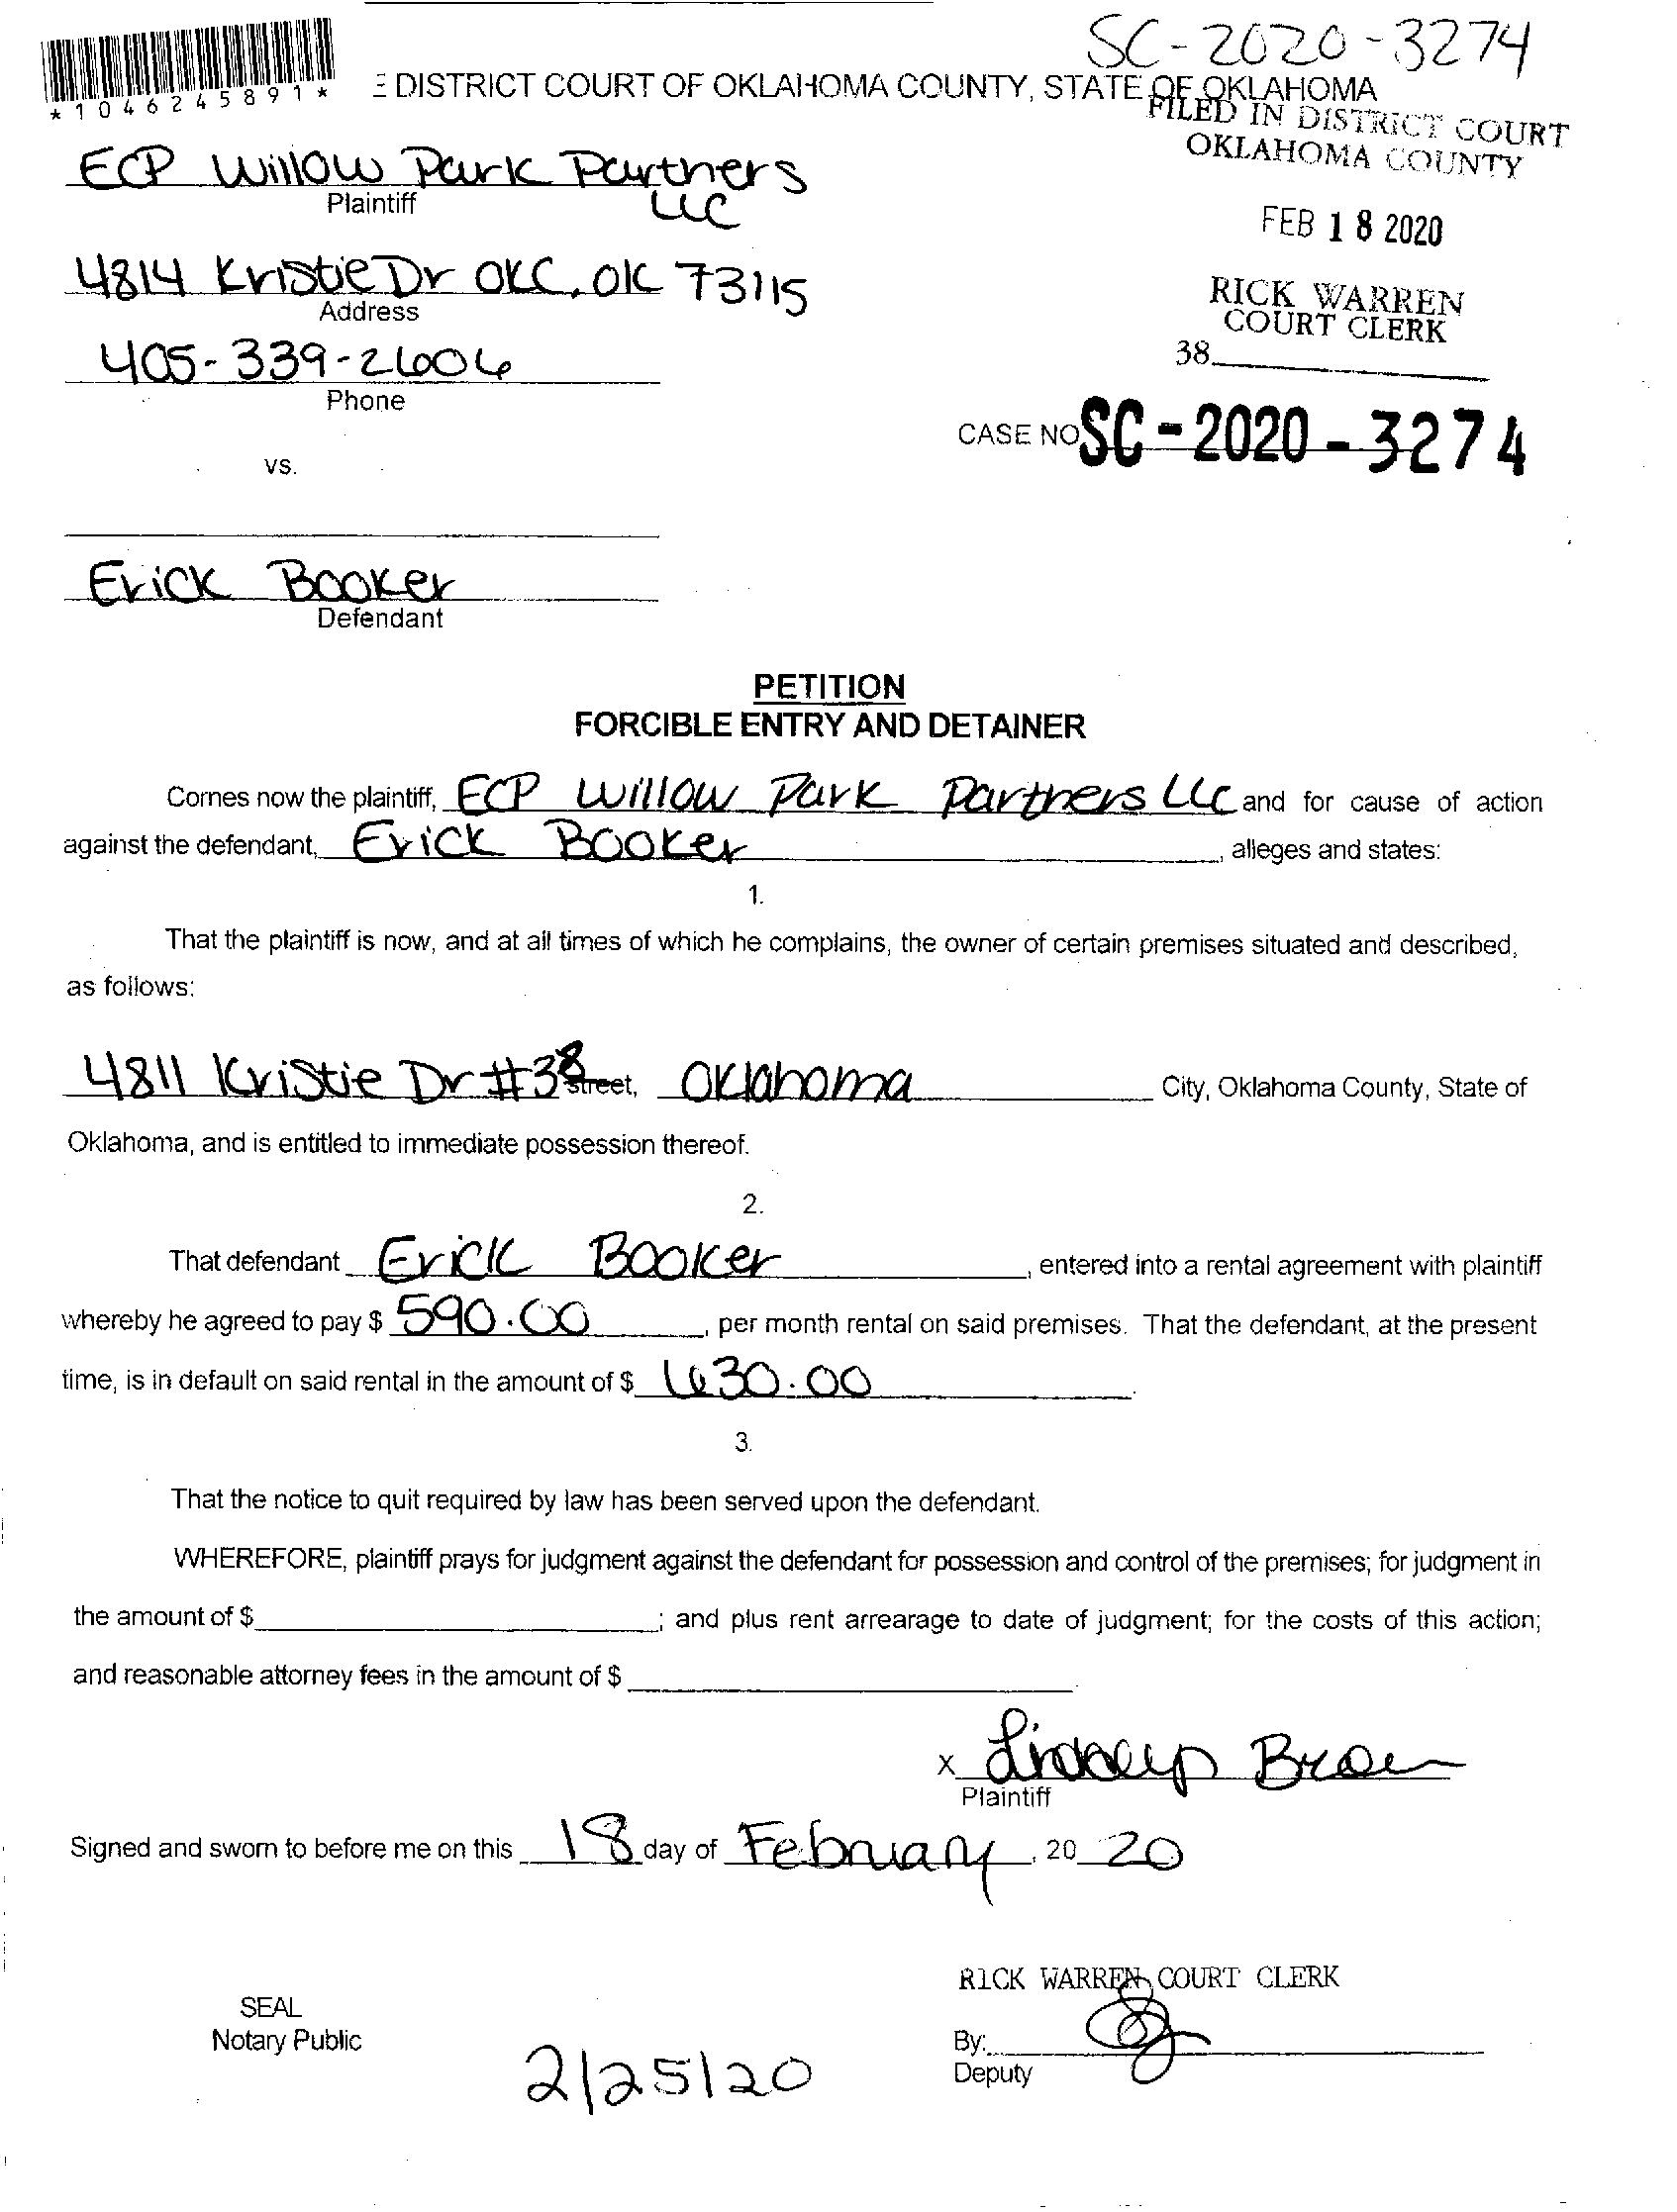 SC-2020-3274
*1046245891*
E DISTRICT COURT OF OKLAHOMA COUNTY, STATE OF OKLAHOMA
FILED IN DISTRICT COURT
OKLAHOMA COUNTY
ECP Willow Park Partners
LLC
Plaintiff
FEB 18 2020
4814 Kristie Dr OKC, OK 73115
Address
RICK WARREN
COURT CLERK
38
405-339-2606
Phone
CASE NO SC-2020-3274
vs.
Erick Booker
Defendant
PETITION
FORCIBLE ENTRY AND DETAINER
Comes now the plaintiff, ECP Willow Park Partners LLC and for cause of action
against the defendant, Erick Booker, alleges and states:
1.
That the plaintiff is now, and at all times of which he complains, the owner of certain premises situated and described,
as follows:
4811 Kristie Dr #38 street, Oklahoma City, Oklahoma County, State of
Oklahoma, and is entitled to immediate possession thereof.
2.
That defendant Erick Booker, entered into a rental agreement with plaintiff
whereby he agreed to pay $ 590.00, per month rental on said premises. That the defendant, at the present
time, is in default on said rental in the amount of $ 630.00.
3.
That the notice to quit required by law has been served upon the defendant.
WHEREFORE, plaintiff prays for judgment against the defendant for possession and control of the premises; for judgment in
the amount of $; and plus rent arrearage to date of judgment; for the costs of this action;
and reasonable attorney fees in the amount of $
X Lindsey
Plaintiff
Signed and sworn to before me on this 18 day of February, 20 20
RICK WARREN COURT CLERK
SEAL
Notary Public
By:
Deputy
2/25/20